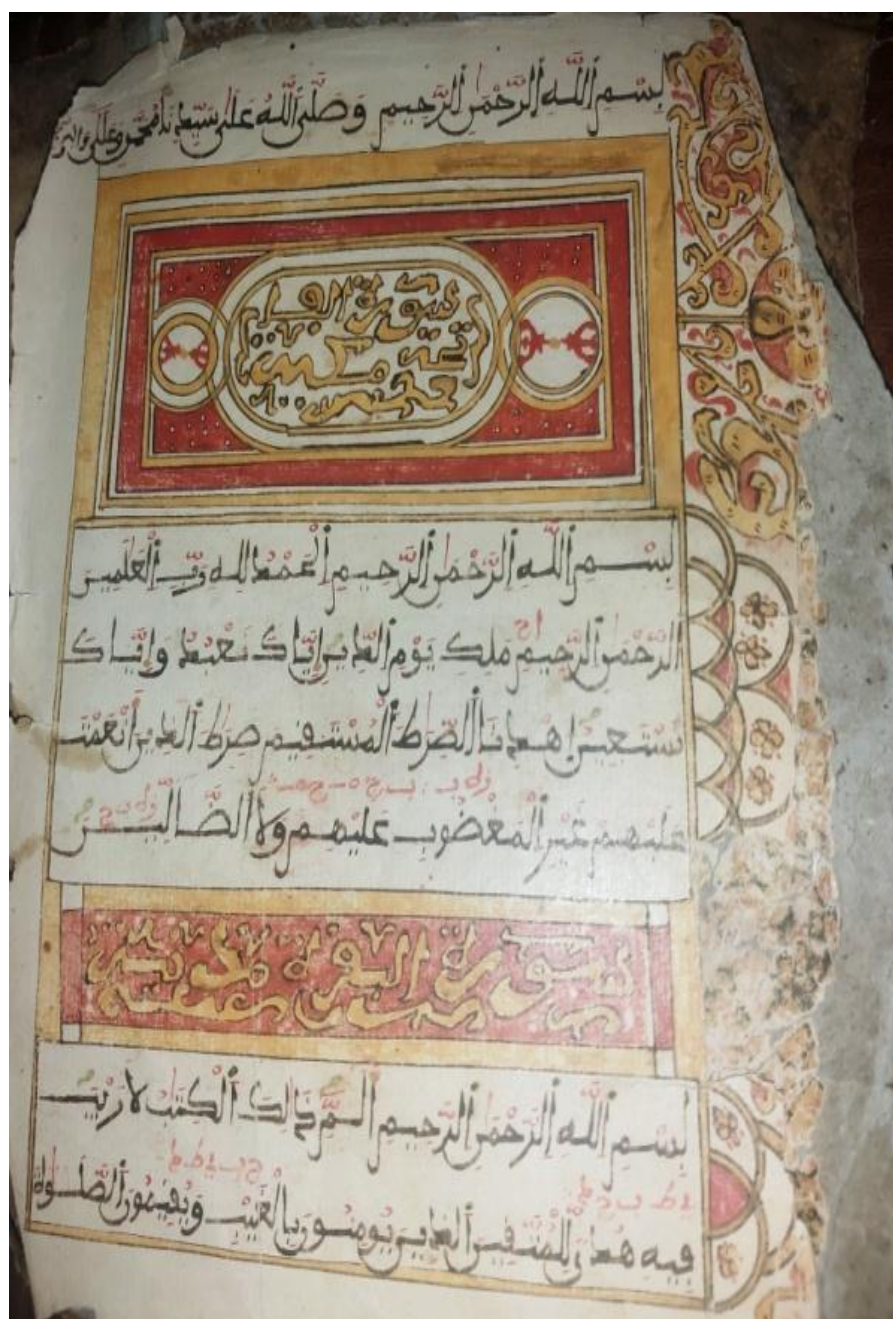 بِسْمِ اللَّهِ الرَّحْمَٰنِ الرَّحِيمِ وَصَلَّى اللَّهُ عَلَى سَيِّدِنَا مُحَمَّدٍ وَعَلَى
سورة الفا
تحة مكية
بِسْمِ اللَّهِ الرَّحْمَٰنِ الرَّحِيمِ الْحَمْدُ لِلهِ رَبِّ الْعَٰلَمِينَ
الرَّحْمَٰنِ الرَّحِيمِ مَلِكِ يَوْمِ الدِّينِ إِيَّاكَ نَعْبُدُ وَإِيَّاكَ
نَسْتَعِينُ اِهْدِنَا الصِّرَٰطَ الْمُسْتَقِيمَ صِرَٰطَ الَّذِينَ أَنْعَمْتَ
عَلَيْهِمْ غَيْرِ الْمَغْضُوبِ عَلَيْهِمْ وَلَا الضَّالِّينَ
سورة البقرة مدنية
بِسْمِ اللَّهِ الرَّحْمَٰنِ الرَّحِيمِ الٓمٓ ذَٰلِكَ الْكِتَٰبُ لَا رَيْبَ
فِيهِ هُدًى لِّلْمُتَّقِينَ الَّذِينَ يُومِنُونَ بِالْغَيْبِ وَيُقِيمُونَ الصَّلَوٰةَ